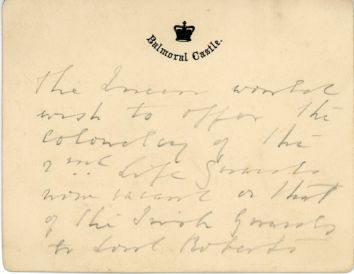 Balmoral Castle.
The Queen would
wish to offer the
Colonelcy of the
2nd Life Guards
now vacant or that
of the Irish Guards
to Lord Roberts